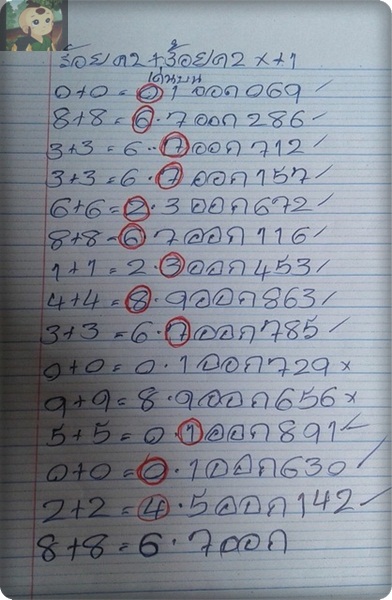 ร้อยบน2+ร้อยบน2 x+1
เด่นบน
0+0=0.1 ออก069 ✓
8+8=6.7ออก286 ✓
3+3=6.7ออก712 ✓
3+3=6.7ออก157 ✓
6+6=2.3ออก672 ✓
8+8=6.7ออก116 ✓
1+1=2.3ออก453 ✓
4+4=8.9ออก863 ✓
3+3=6.7ออก785 ✓
0+0=0.1ออก729 x
9+9=8.9ออก656 x
5+5=0.1ออก891 ✓
0+0=0.1ออก630 ✓
2+2=4.5ออก142 ✓
8+8=6.7ออก